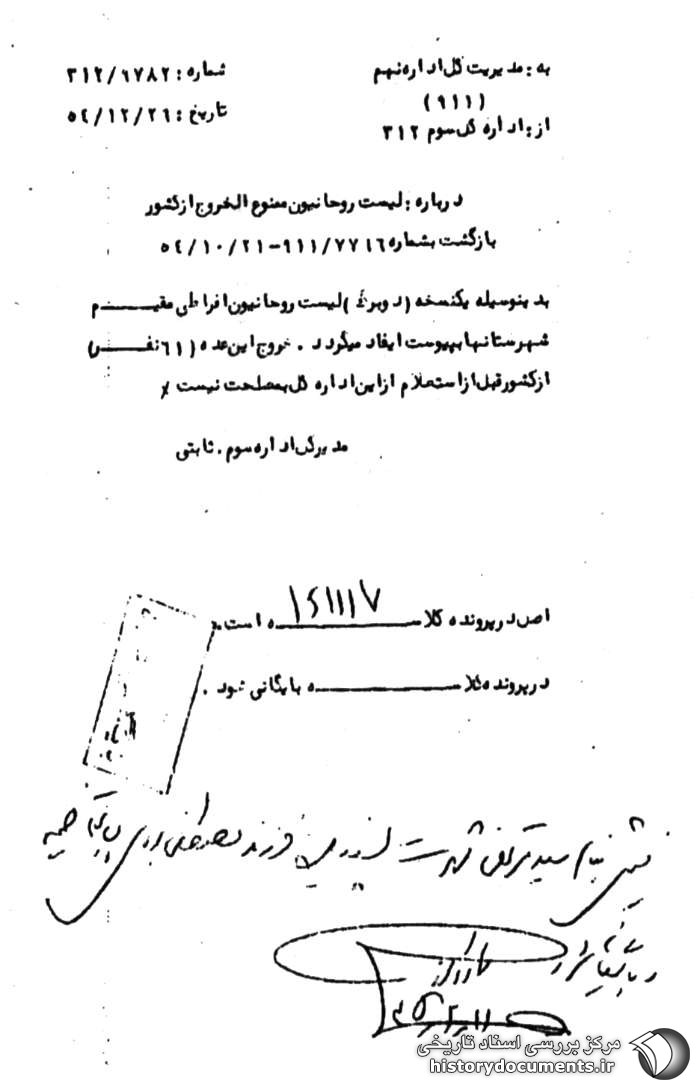 به : مدیریت کل اداره نهم
(۹۱۱)
از : اداره کل سوم ۳۱۲
شماره : ۳۱۲/۶۷۸۲
تاریخ : ۵۴/۱۲/۲۶
درباره : لیست روحانیون ممنوع الخروج از کشور
بازگشت بشماره ۷۷۱۶/۹۱۱-۵۴/۱۰/۲۱
بدینوسیله یکنسخه (دو برگ) لیست روحانیون افراطی مقیم
شهرستانها بپیوست ایفاد میگردد . خروج این عده (۶۱ نفر)
از کشور قبل از استعلام از این اداره کل بمصلحت نیست
مدیر کل اداره سوم . ثابتی
اصل در پرونده کلاسه ۱۶۱۱۱۷ است .
در پرونده کلاسه بایگانی شود .
بنام سید مرتضی شهرت فرزند مصطفی
مرکز بررسی اسناد تاریخی
historydocuments.ir